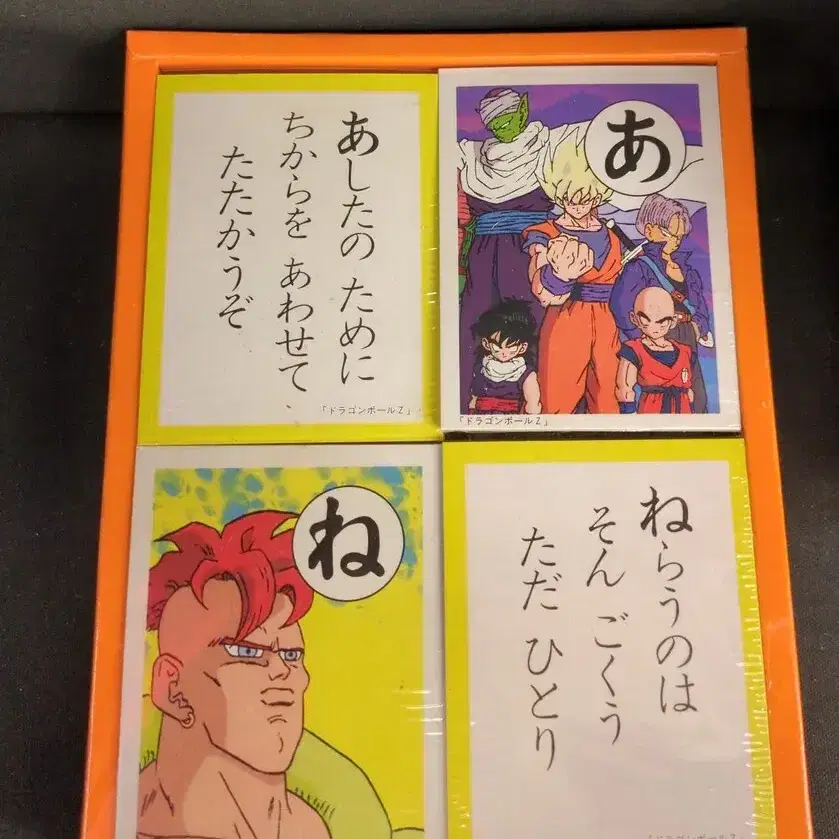 あしたの ために
ちからを あわせて
たたかうぞ
「ドラゴンボールZ」
あ
「ドラゴンボールZ」
ね
ねらうのは
そん ごくう
ただ ひとり
「ドラゴンボールZ